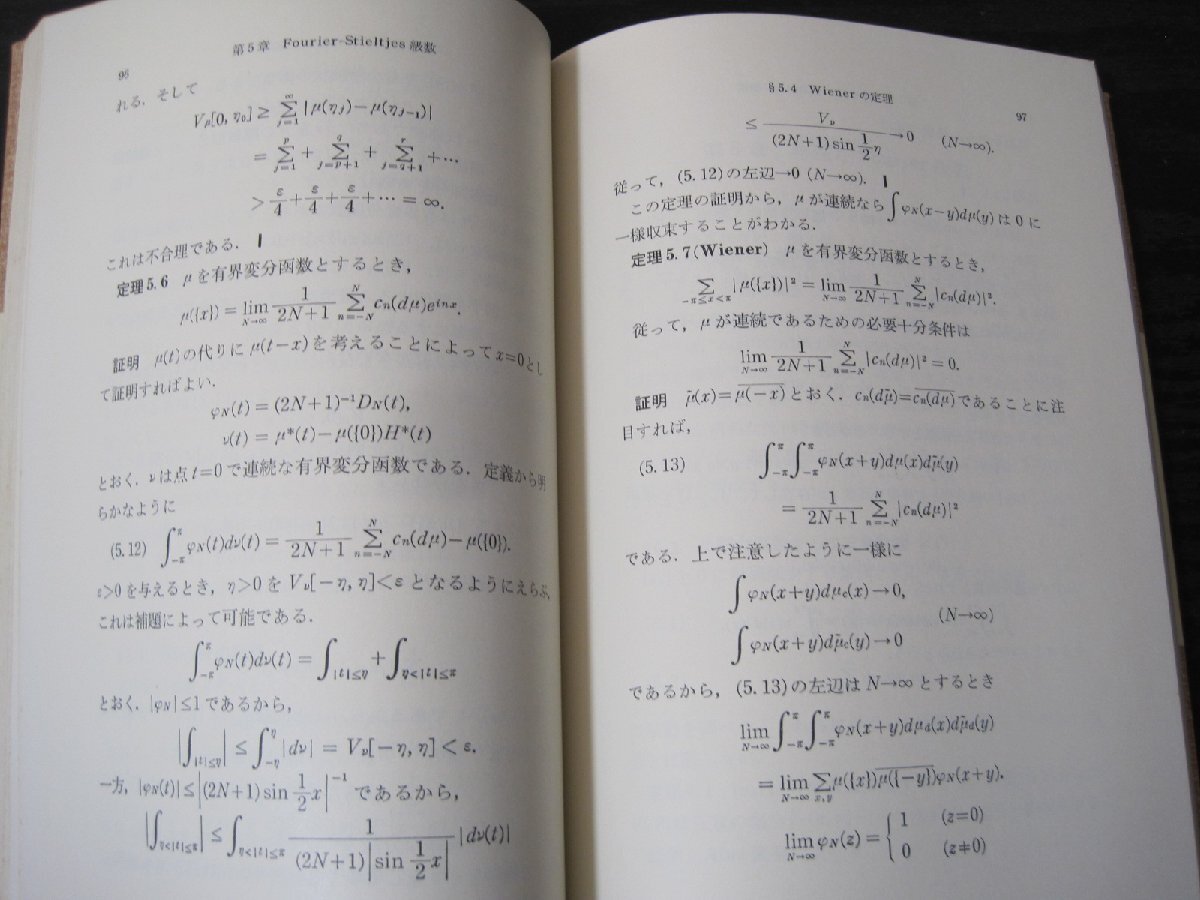 96
第5章 Fourier-Stieltjes 級数
れる.そして
V_μ[0, η₀] ≥ \sum_{j=1}^{∞} |μ(η_j)−μ(η_{j−1})|
= \sum_{j=1}^{p} + \sum_{j=p+1}^{q} + \sum_{j=q+1}^{r} + ⋯
> \frac{ε}{4} + \frac{ε}{4} + \frac{ε}{4} + ⋯ = ∞.
これは不合理である.
定理5.6 μを有界変分函数とするとき,
μ({x}) = \lim_{N→∞} \frac{1}{2N+1} \sum_{n=−N}^{N} c_n(dμ)e^{inx}.
証明 μ(t)の代りにμ(t−x)を考えることによってx=0とし
て証明すればよい.
φ_N(t) = (2N+1)^{−1}D_N(t),
ν(t) = μ*(t)−μ({0})H*(t)
とおく.νは点t=0で連続な有界変分函数である.定義から明
らかなように
(5.12) \int_{−π}^{π} φ_N(t)dν(t) = \frac{1}{2N+1} \sum_{n=−N}^{N} c_n(dμ)−μ({0}).
ε>0を与えるとき,η>0をV_ν[−η, η]<εとなるようにえらぶ,
これは補題によって可能である.
\int_{−π}^{π} φ_N(t)dν(t) = \int_{|t|≤η} + \int_{η<|t|≤π}
とおく.|φ_N|≤1であるから,
|\int_{|t|≤η}| ≤ \int_{−η}^{η} |dν| = V_ν[−η, η] < ε.
一方,|φ_N(t)| ≤ |(2N+1)sin \frac{1}{2}x|^{−1} であるから,
|\int_{η<|t|≤π}| ≤ \int_{η<|t|≤π} \frac{1}{(2N+1)|sin \frac{1}{2}x|} |dν(t)|
§5.4 Wienerの定理
97
≤ \frac{V_ν}{(2N+1)sin \frac{1}{2}η} → 0 (N→∞).
従って,(5.12)の左辺→0 (N→∞).
この定理の証明から,μが連続なら\int φ_N(x−y)dμ(y)は0に
一様収束することがわかる.
定理5.7(Wiener) μを有界変分函数とするとき,
\sum_{−π≤x<π} |μ({x})|² = \lim_{N→∞} \frac{1}{2N+1} \sum_{n=−N}^{N} |c_n(dμ)|².
従って,μが連続であるための必要十分条件は
\lim_{N→∞} \frac{1}{2N+1} \sum_{n=−N}^{N} |c_n(dμ)|² = 0.
証明 \tilde{μ}(x)=\overline{μ(−x)}とおく.c_n(d\tilde{μ})=\overline{c_n(dμ)}であることに注
目すれば,
(5.13) \int_{−π}^{π}\int_{−π}^{π} φ_N(x+y)dμ(x)d\tilde{μ}(y)
= \frac{1}{2N+1} \sum_{n=−N}^{N} |c_n(dμ)|²
である.上で注意したように一様に
\int φ_N(x+y)dμ_c(x) → 0,
(N→∞)
\int φ_N(x+y)d\tilde{μ}_c(y) → 0
であるから,(5.13)の左辺はN→∞とするとき
\lim_{N→∞} \int_{−π}^{π}\int_{−π}^{π} φ_N(x+y)dμ_d(x)d\tilde{μ}_d(y)
= \lim_{N→∞} \sum_{x,y} μ({x})\overline{μ({−y})}φ_N(x+y).
\lim_{N→∞} φ_N(z) = { 1 (z=0)
0 (z≠0)